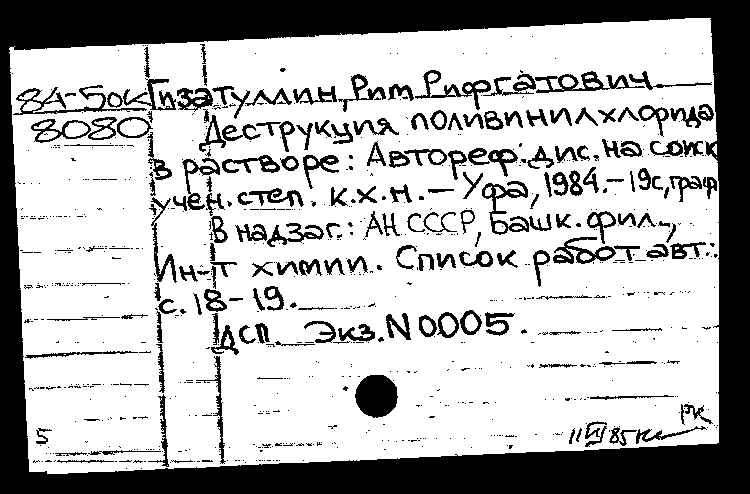 84-5ок Гизатуллин, Рим Рифгатович.
8080 Деструкция поливинилхлорида
в растворе: Автореф. дис. на соиск
учен. степ. к.х.н. – Уфа, 1984. – 19с, граф
В надзаг.: АН СССР, Башк. фил.,
Ин-т химии. Список работ авт.:
с. 18-19.
ДСП. Экз. N 0005.
РК
5 11 VI 85